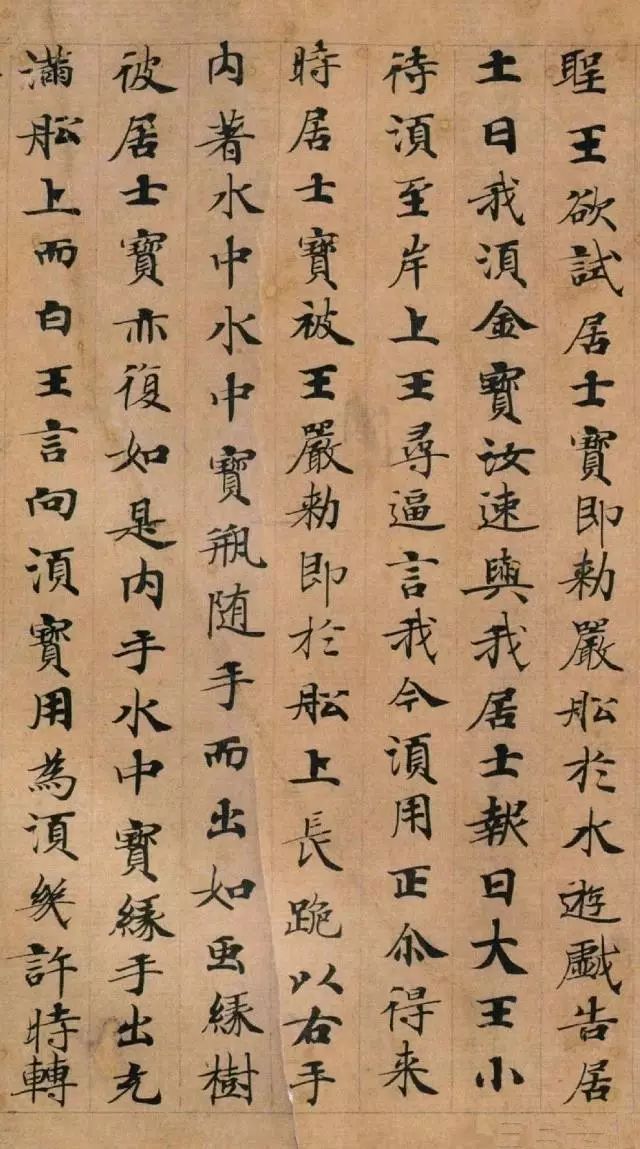 聖王欲試居士寶即勅嚴舩於水遊戲告居
士曰我湏金寶汝速與我居士報曰大王小
待湏至岸上王尋逼言我今湏用正尒得来
時居士寶被王嚴勅即於舩上長跪以右手
内著水中水中寶瓶随手而出如虫緣樹
彼居士寶亦復如是内手水中寶緣手出充
滿舩上而白王言向湏寶用為湏幾許時轉